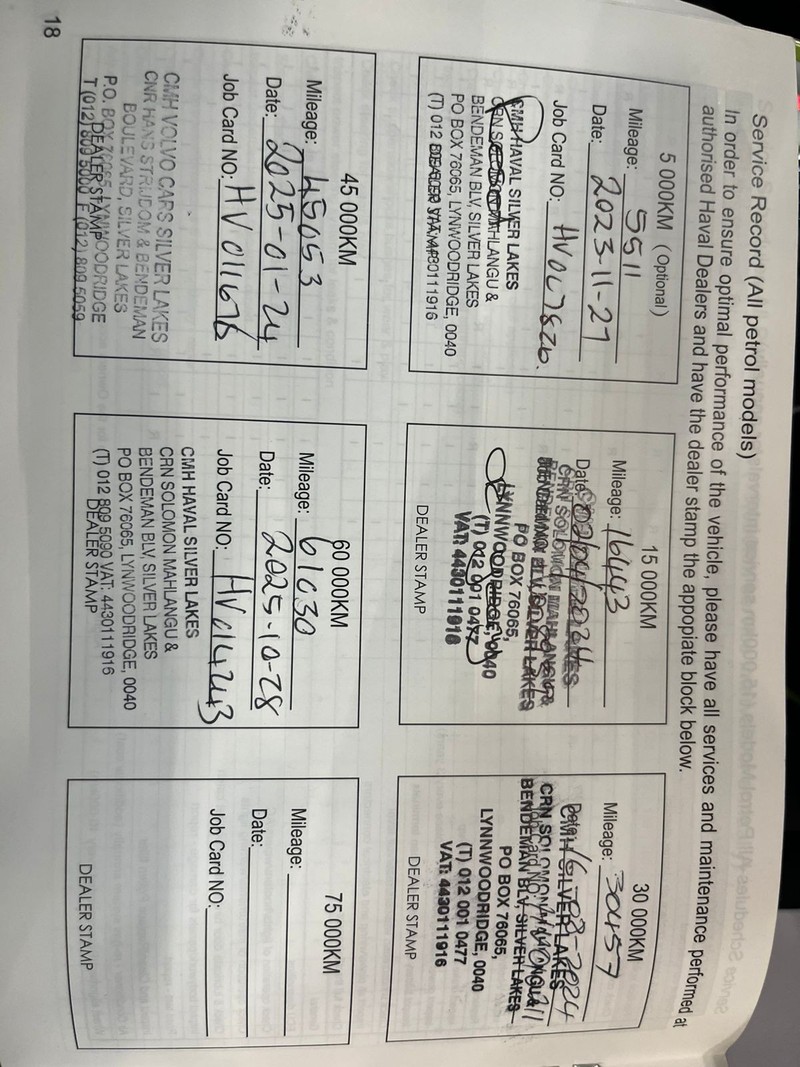 Service Record (All petrol models)
In order to ensure optimal performance of the vehicle, please have all services and maintenance performed at
authorised Haval Dealers and have the dealer stamp the appopiate block below.
5 000KM (Optional)
Mileage: 5511
Date: 2023-11-27
Job Card NO:
CMH HAVAL SILVER LAKES
CRN MAHLANGU &
BENDEMAN BLV, SILVER LAKES
PO BOX 76065, LYNWOODRIDGE, 0040
(T) 012
15 000KM
Mileage: 16443
Date: 02/04/2024
CRN SOLOMON MAHLANGU &
BENDEMAN BLV, SILVER LAKES
PO BOX 76065,
LYNNWOODRIDGE, 0040
(T) 012 001 0477
VAT: 4430111916
DEALER STAMP
30 000KM
Mileage: 30457
Date: 2024
CMH SILVER LAKES
CRN SOLOMON MAHLANGU &
BENDEMAN BLV, SILVER LAKES
PO BOX 76065,
LYNNWOODRIDGE, 0040
(T) 012 001 0477
VAT: 4430111916
DEALER STAMP
45 000KM
Mileage: 45053
Date: 2025-01-24
Job Card NO: HV011676
CMH VOLVO CARS SILVER LAKES
CNR HANS STRIJDOM & BENDEMAN
BOULEVARD, SILVER LAKES
P.O. BOX 76065 LYNWOODRIDGE
DEALER STAMP
T (012) 809 5000 F (012) 809 5059
60 000KM
Mileage: 61030
Date: 2025-10-28
Job Card NO: HV014243
CMH HAVAL SILVER LAKES
CRN SOLOMON MAHLANGU &
BENDEMAN BLV SILVER LAKES
PO BOX 76065, LYNWOODRIDGE, 0040
(T) 012 809 5090 VAT: 4430111916
DEALER STAMP
75 000KM
Mileage:
Date:
Job Card NO:
DEALER STAMP
18